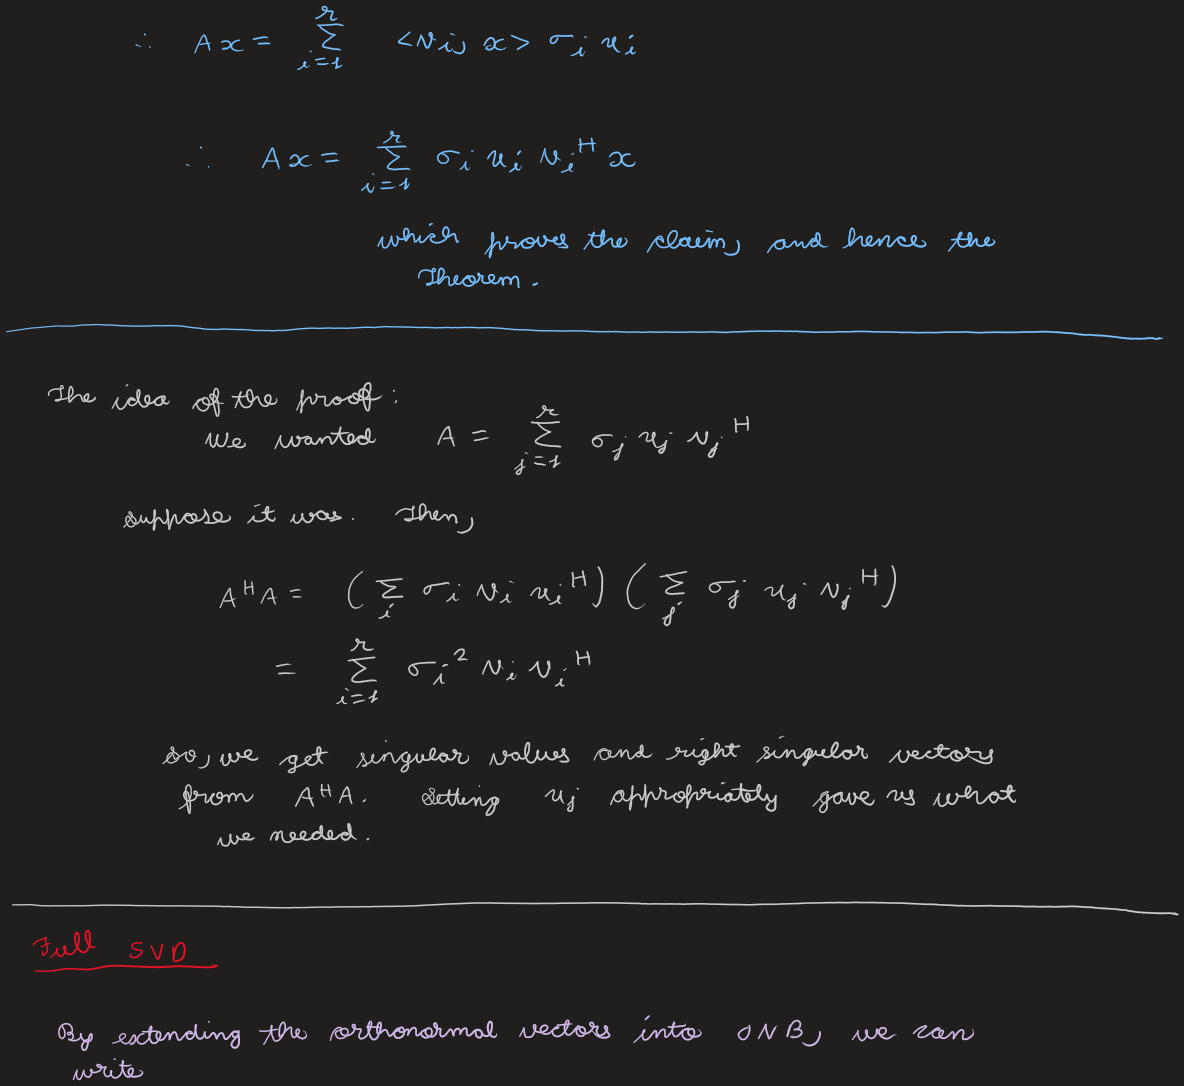 ∴ Ax = Σ_{i=1}^{r} <v_i, x> σ_i u_i
∴ Ax = Σ_{i=1}^{r} σ_i u_i v_i^H x
which proves the claim, and hence the
Theorem.
The idea of the proof:
We wanted A = Σ_{j=1}^{r} σ_j u_j v_j^H
suppose it was. Then,
A^H A = (Σ_i σ_i v_i u_i^H) (Σ_j σ_j u_j v_j^H)
= Σ_{i=1}^{r} σ_i^2 v_i v_i^H
so, we get singular values and right singular vectors
from A^H A. Setting u_j appropriately gave us what
we needed.
Full SVD
By extending the orthonormal vectors into ONB, we can
write